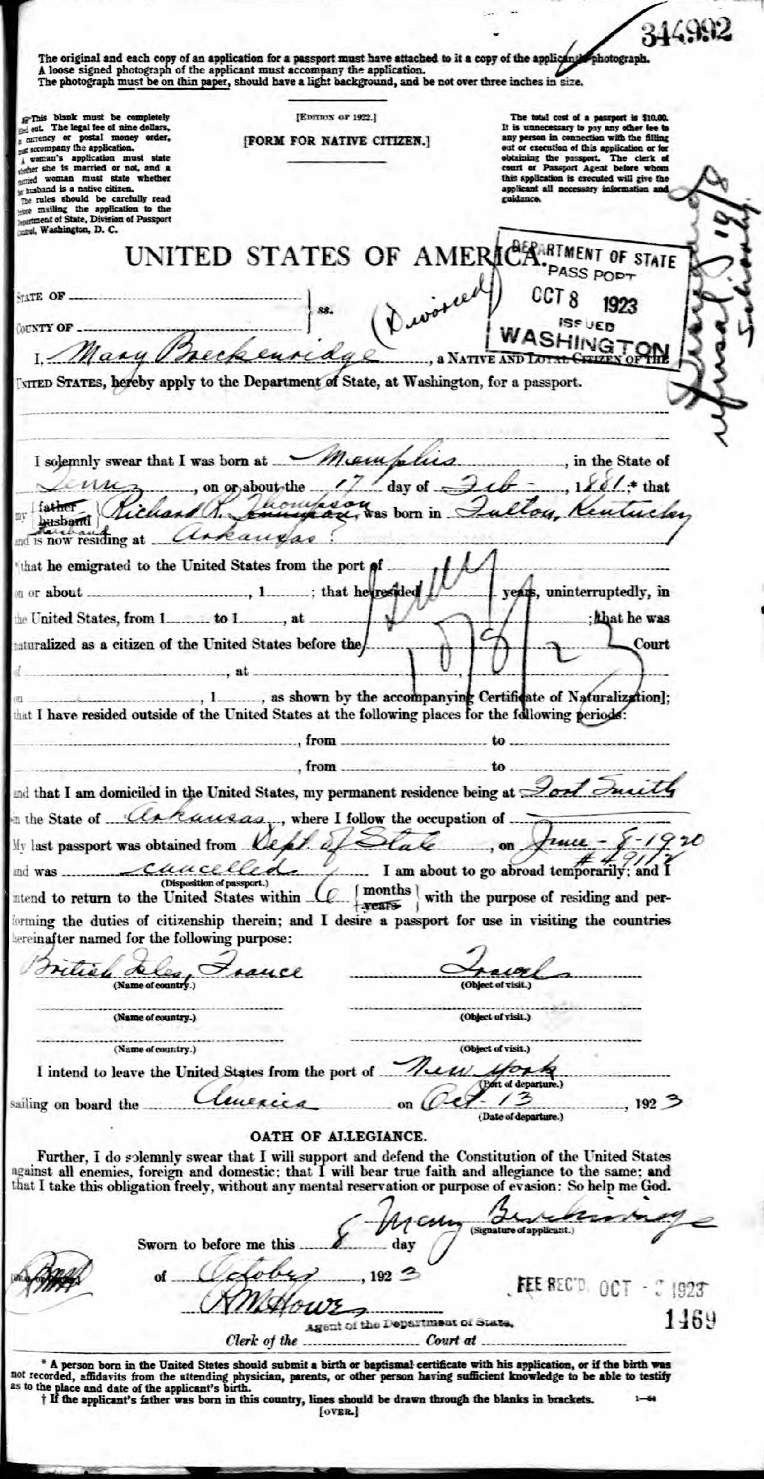 344992
The original and each copy of an application for a passport must have attached to it a copy of the applicant's photograph.
A loose signed photograph of the applicant must accompany the application.
The photograph must be on thin paper, should have a light background, and be not over three inches in size.
This blank must be completely
out. The legal fee of nine dollars,
currency or postal money order,
accompany the application.
A woman's application must state
whether she is married or not, and a
married woman must state whether
her husband is a native citizen.
The rules should be carefully read
before mailing the application to the
Department of State, Division of Passport
Control, Washington, D. C.
[EDITION OF 1922.]
[FORM FOR NATIVE CITIZEN.]
The total cost of a passport is $10.00.
It is unnecessary to pay any other fee to
any person in connection with the filling
out or execution of this application or for
obtaining the passport. The clerk of
court or Passport Agent before whom
this application is executed will give the
applicant all necessary information and
guidance.
refusal 10/8
UNITED STATES OF AMERICA.
DEPARTMENT OF STATE
PASSPORT
OCT 8 1923
ISSUED
WASHINGTON
STATE OF
COUNTY OF
ss.
(Divorced)
I, Mary Breckenridge, a NATIVE AND LOYAL CITIZEN OF THE
UNITED STATES, hereby apply to the Department of State, at Washington, for a passport.
I solemnly swear that I was born at Memphis, in the State of
Tenn, on or about the 17 day of Feb-, 1881;* that
my {father husband} Richard R. Thompson, was born in Fulton, Kentucky
husband
and is now residing at Arkansas?
that he emigrated to the United States from the port of
on or about , 1 ; that he resided years, uninterruptedly, in
the United States, from 1 to 1 , at ; that he was
naturalized as a citizen of the United States before the Court
of , at
10/8/23
on , 1 , as shown by the accompanying Certificate of Naturalization];
that I have resided outside of the United States at the following places for the following periods:
, from to
, from to
and that I am domiciled in the United States, my permanent residence being at Fort Smith
in the State of Arkansas, where I follow the occupation of
My last passport was obtained from Dept of State, on June - 8 - 1920
# 49112
and was cancelled I am about to go abroad temporarily; and I
(Disposition of passport.)
intend to return to the United States within 6 {months years} with the purpose of residing and per-
forming the duties of citizenship therein; and I desire a passport for use in visiting the countries
hereinafter named for the following purpose:
British Isles, France Travel
(Name of country.) (Object of visit.)
(Name of country.) (Object of visit.)
(Name of country.) (Object of visit.)
I intend to leave the United States from the port of New York
(Port of departure.)
sailing on board the America on Oct - 13, 1923
(Date of departure.)
OATH OF ALLEGIANCE.
Further, I do solemnly swear that I will support and defend the Constitution of the United States
against all enemies, foreign and domestic; that I will bear true faith and allegiance to the same; and
that I take this obligation freely, without any mental reservation or purpose of evasion: So help me God.
Mary Breckinridge
(Signature of applicant.)
Sworn to before me this 8 day
of October, 1923
R M Howe
FEE REC'D, OCT - 1923
1469
Agent of the Department of State.
Clerk of the Court at
* A person born in the United States should submit a birth or baptismal certificate with his application, or if the birth was
not recorded, affidavits from the attending physician, parents, or other person having sufficient knowledge to be able to testify
as to the place and date of the applicant's birth.
† If the applicant's father was born in this country, lines should be drawn through the blanks in brackets. 1—64
[OVER.]